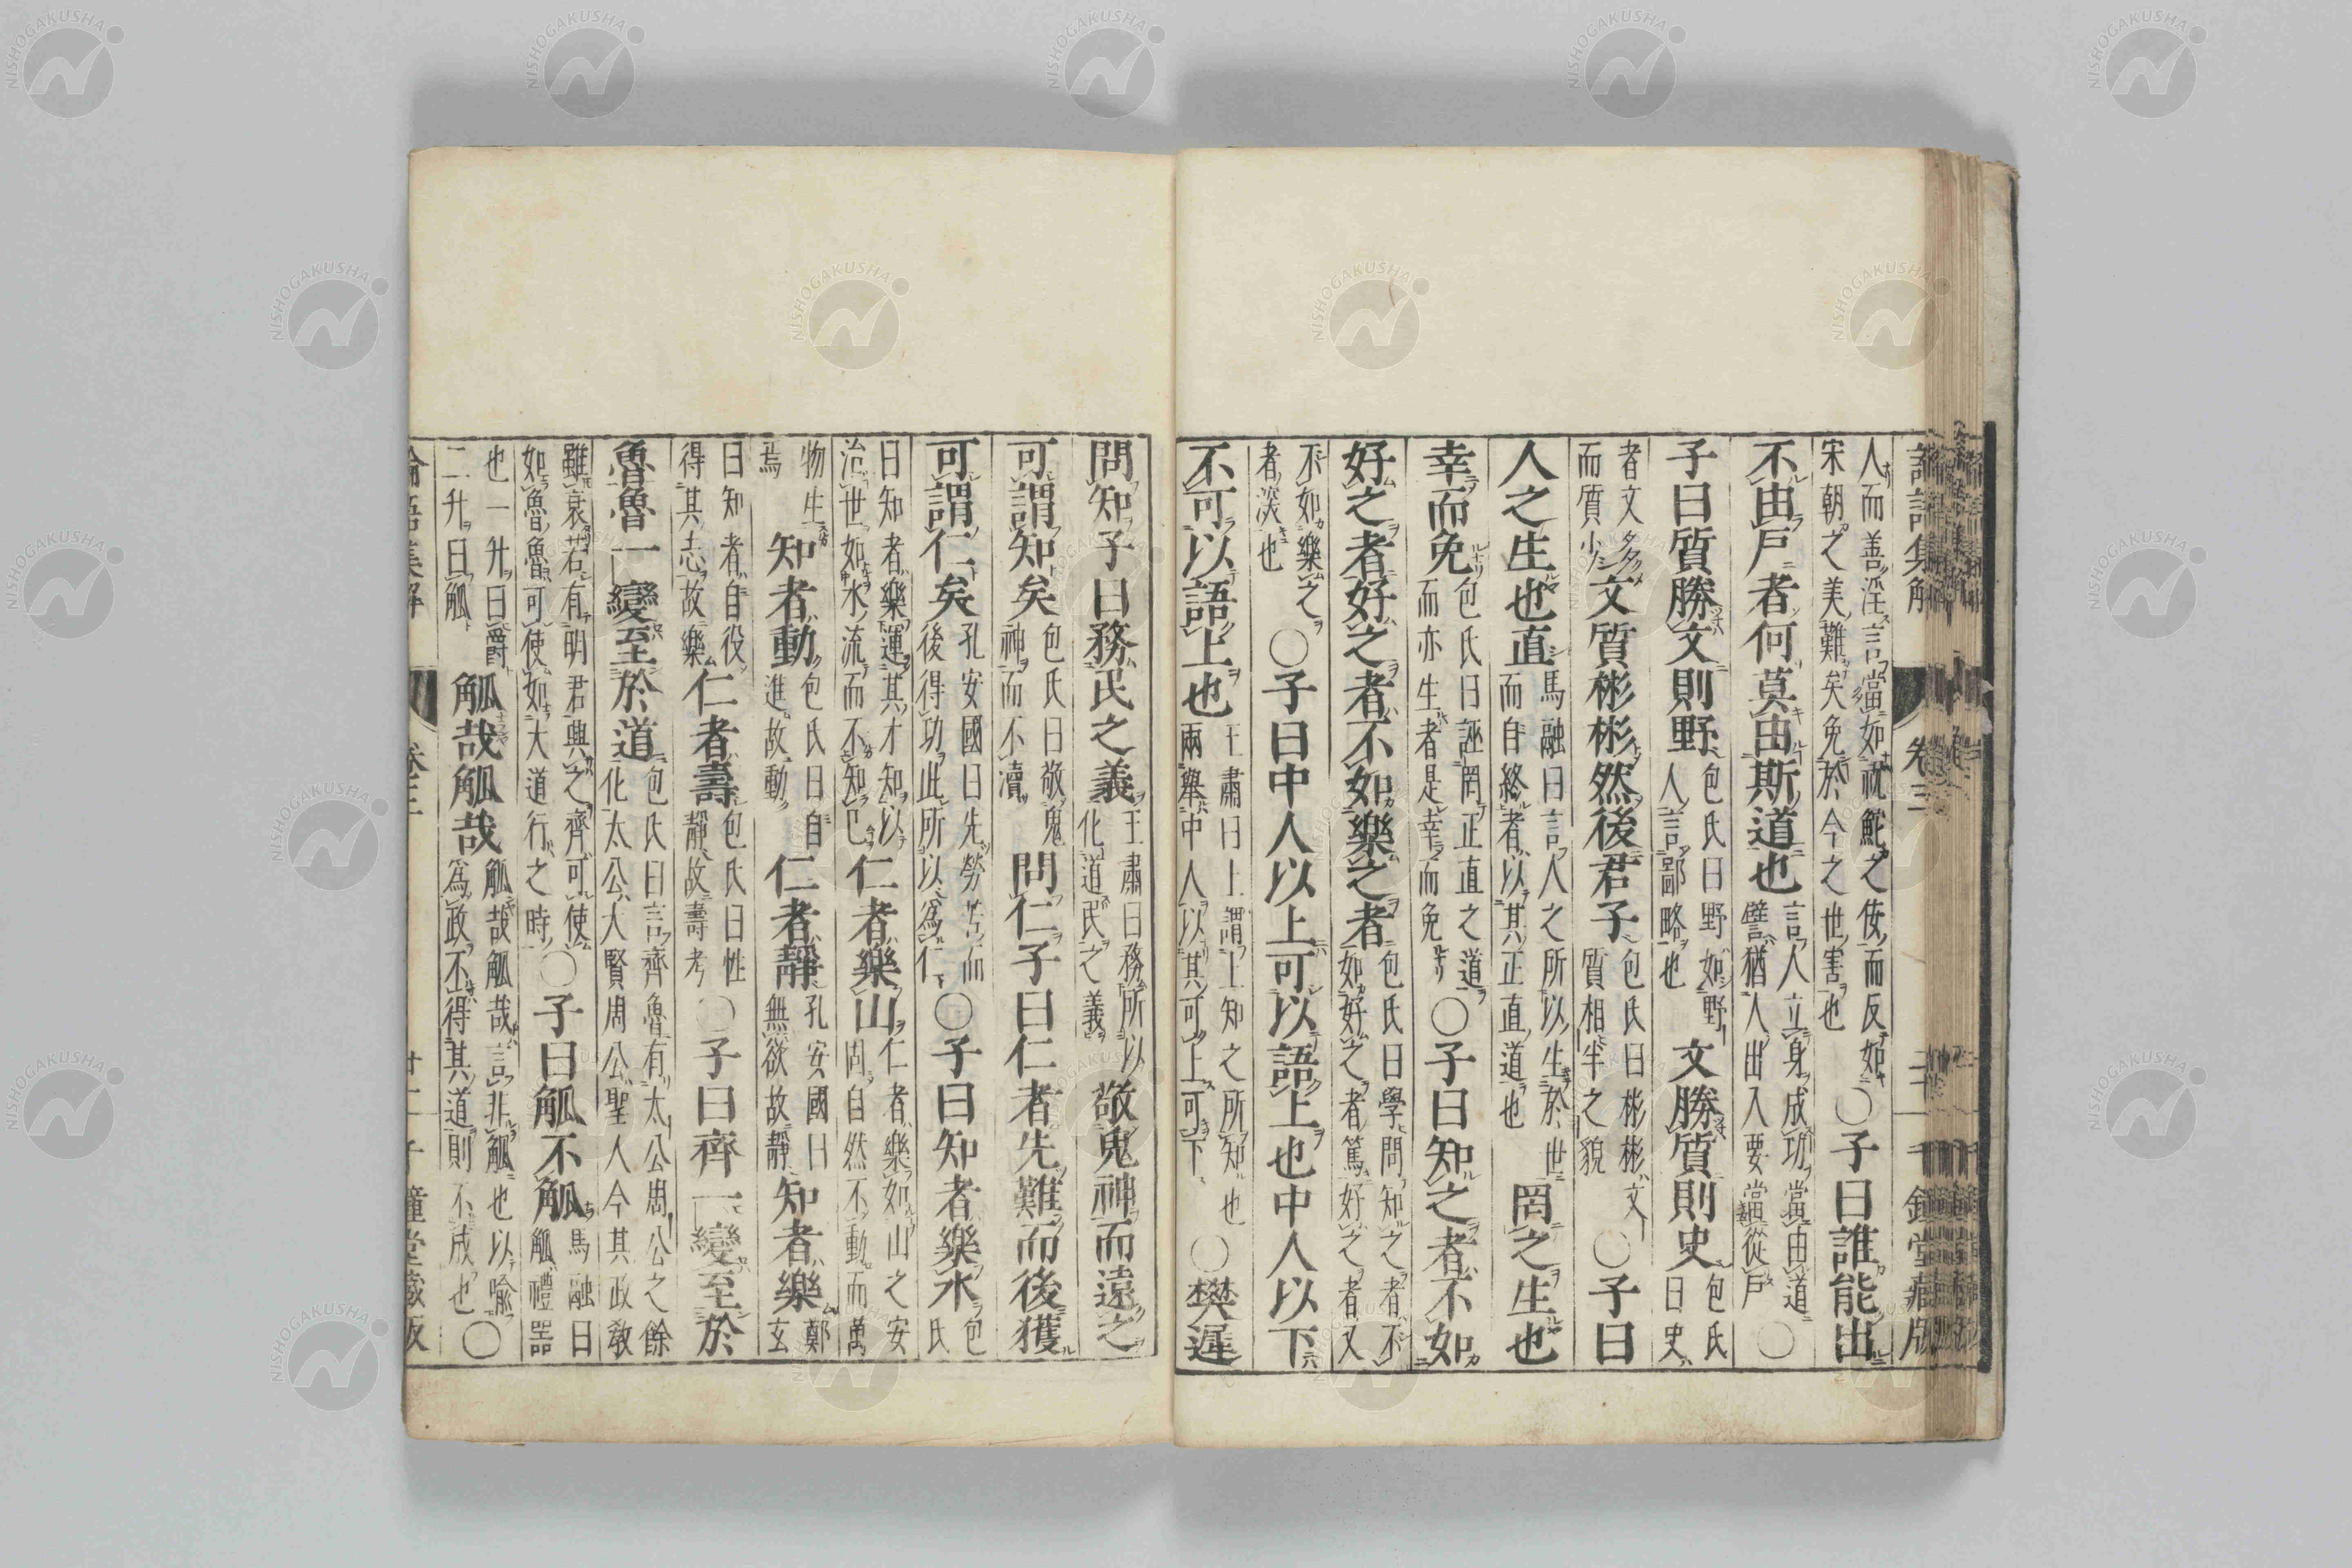 人而善淫言當如祝鮀之佞而反如
宋朝之美難矣免於今之世害也
○子曰誰能出
不由戶者何莫由斯道也
言人立身成功當由道
譬猶人出入要當從戶
○
子曰質勝文則野
包氏曰野如野
人言鄙略也
文勝質則史
包氏
曰史
者文多
而質少
文質彬彬然後君子
包氏曰彬彬文
質相半之貌
○子曰
人之生也直
馬融曰言人之所以生於世
而自終者以其正直道也
罔之生也
幸而免
包氏曰誣罔正直之道
而亦生者是幸而免
○子曰知之者不如
好之者好之者不如樂之者
包氏曰學問知之者不
如好之者篤好之者又
不如樂之
者淡也
○子曰中人以上可以語上也中人以下
不可以語上也
王肅曰上謂上知之所知也
兩舉中人以其可上可下
○樊遲
問知子曰務民之義
王肅曰務所以
化道民之義
敬鬼神而遠之
可謂知矣
包氏曰敬鬼
神而不瀆
問仁子曰仁者先難而後獲
可謂仁矣
孔安國曰先勞苦而
後得功此所以爲仁
○子曰知者樂水
包
氏
曰知者樂運其才知以
治世如水流而不知已
仁者樂山
仁者樂如山之安
固自然不動而萬
物生
焉
知者動
包氏曰自
進故動
仁者靜
孔安國曰
無欲故靜
知者樂
鄭
玄
曰知者自役
得其志故樂
仁者壽
包氏曰性
靜故壽考
○子曰齊一變至於
魯魯一變至於道
包氏曰言齊魯有太公周公之餘
化太公大賢周公聖人今其政敎
雖衰若有明君興之齊可使
如魯魯可使如大道行之時
○子曰觚不觚
馬融曰
觚禮器
也一升曰爵
二升曰觚
觚哉觚哉
觚哉觚哉言非觚也以喩
爲政不得其道則不成也
○
論語集解
卷三
千鍾堂藏版